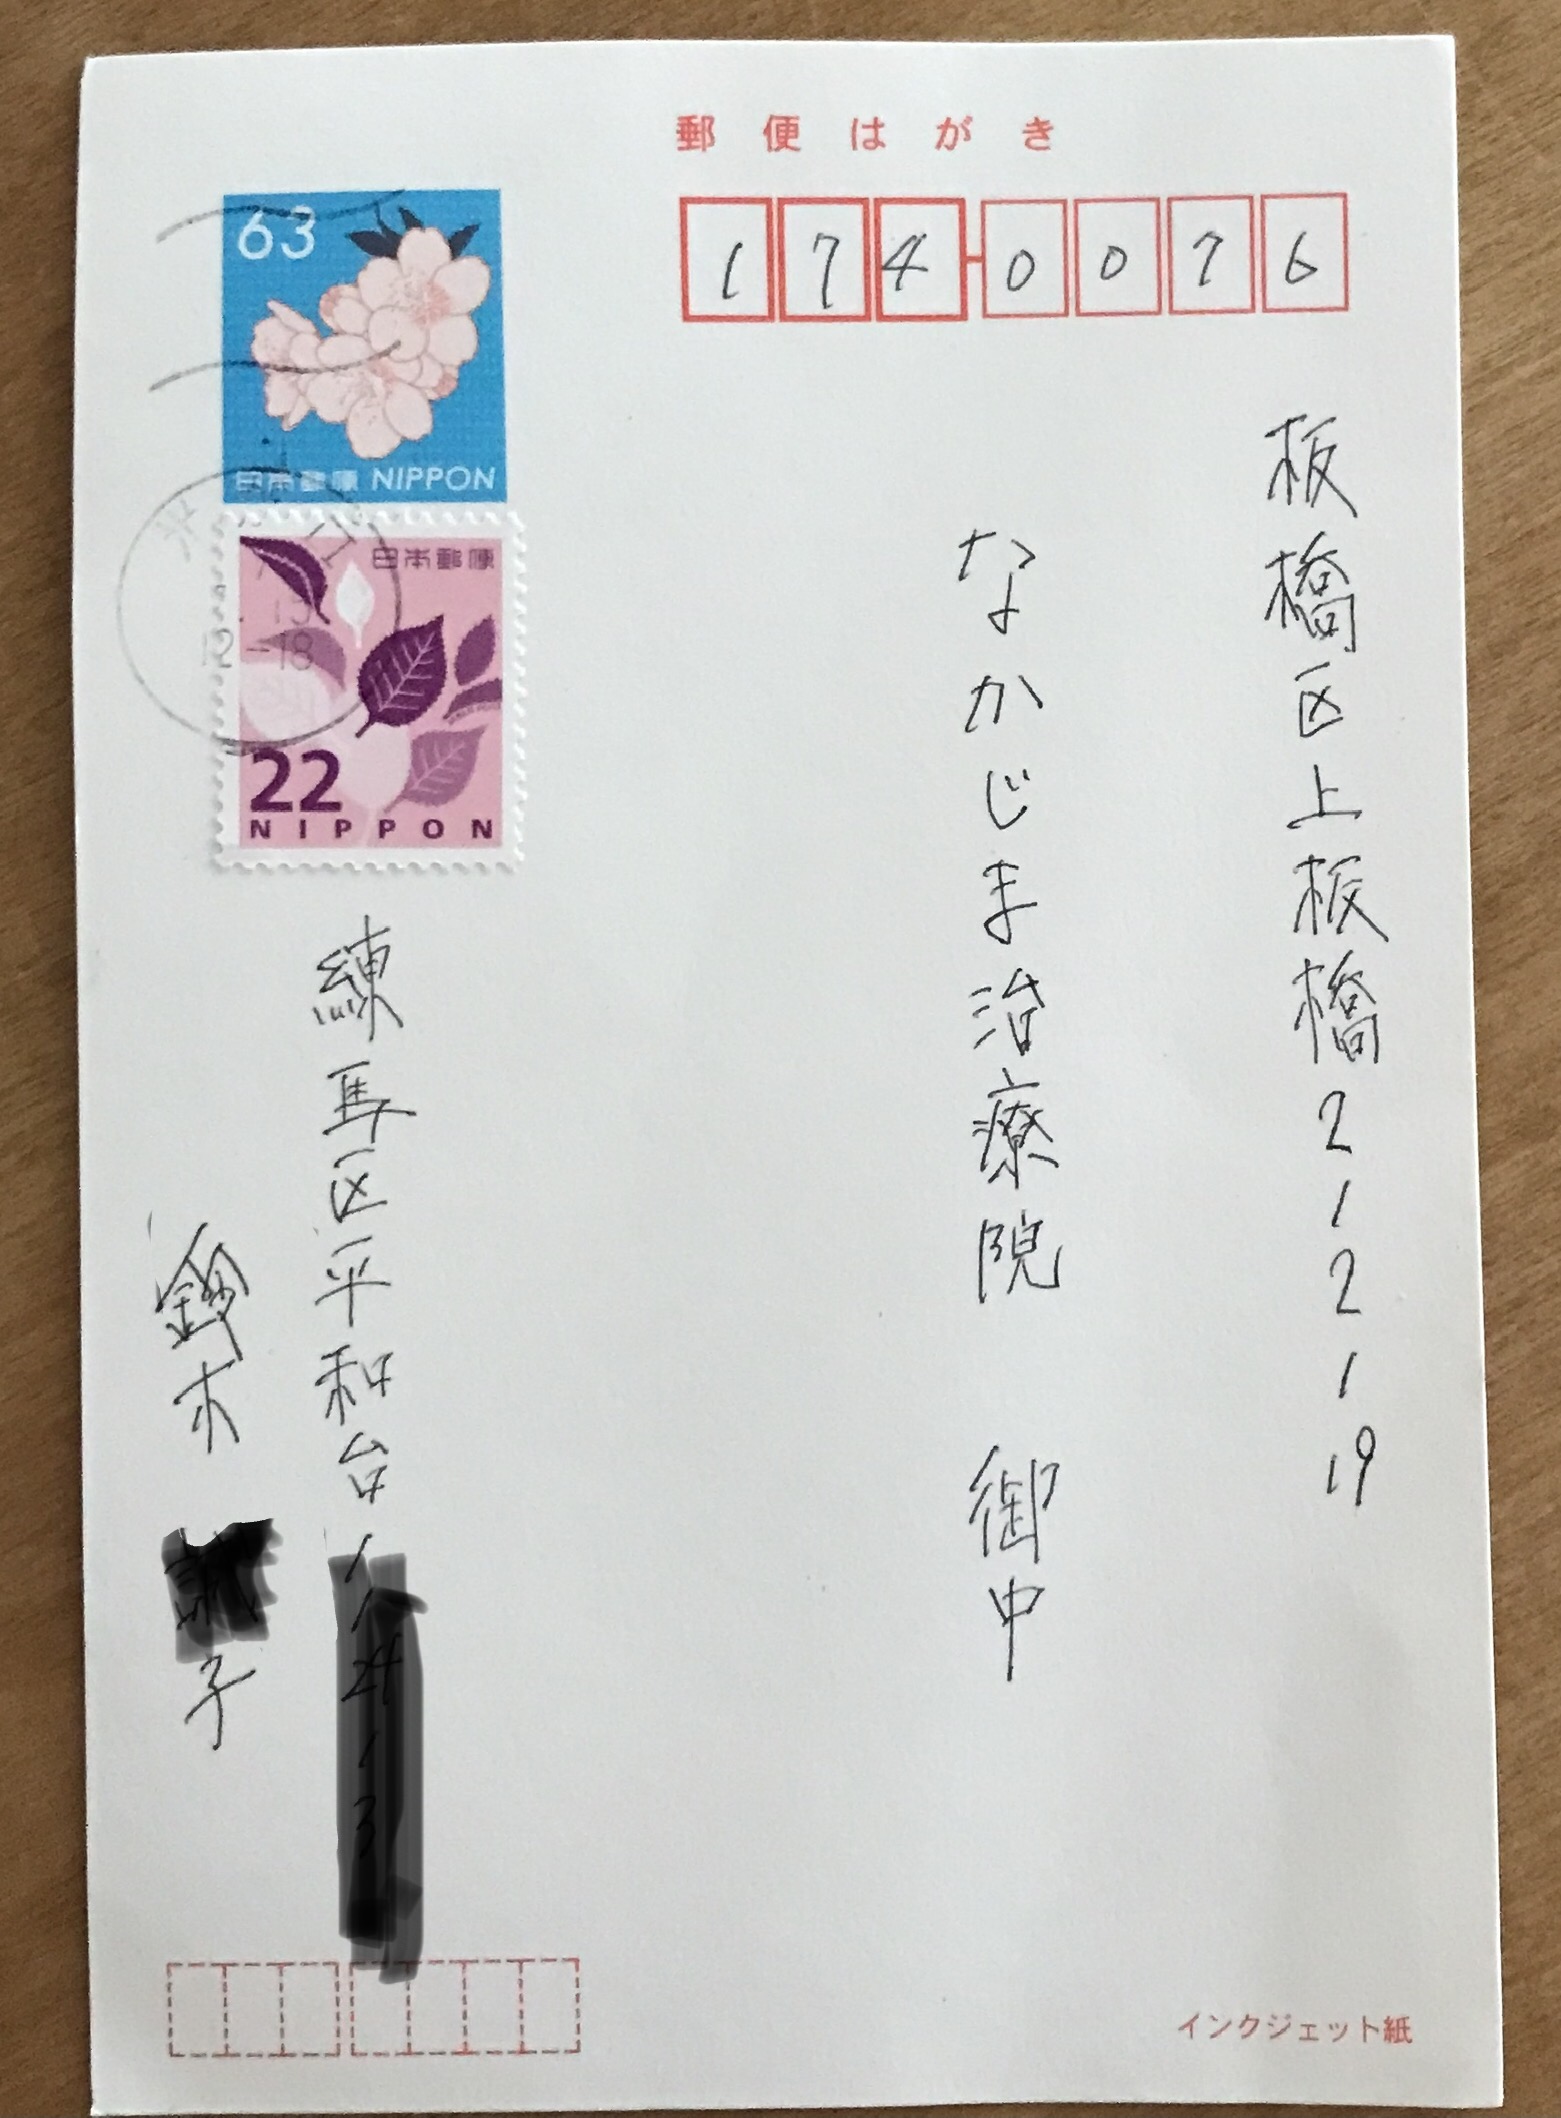 郵便はがき
174-0076
板橋区上板橋2-2-19
なかじま治療院 御中
63
日本郵便 NIPPON
日本郵便
12-18
22
NIPPON
練馬区平和台
木
子
インクジェット紙